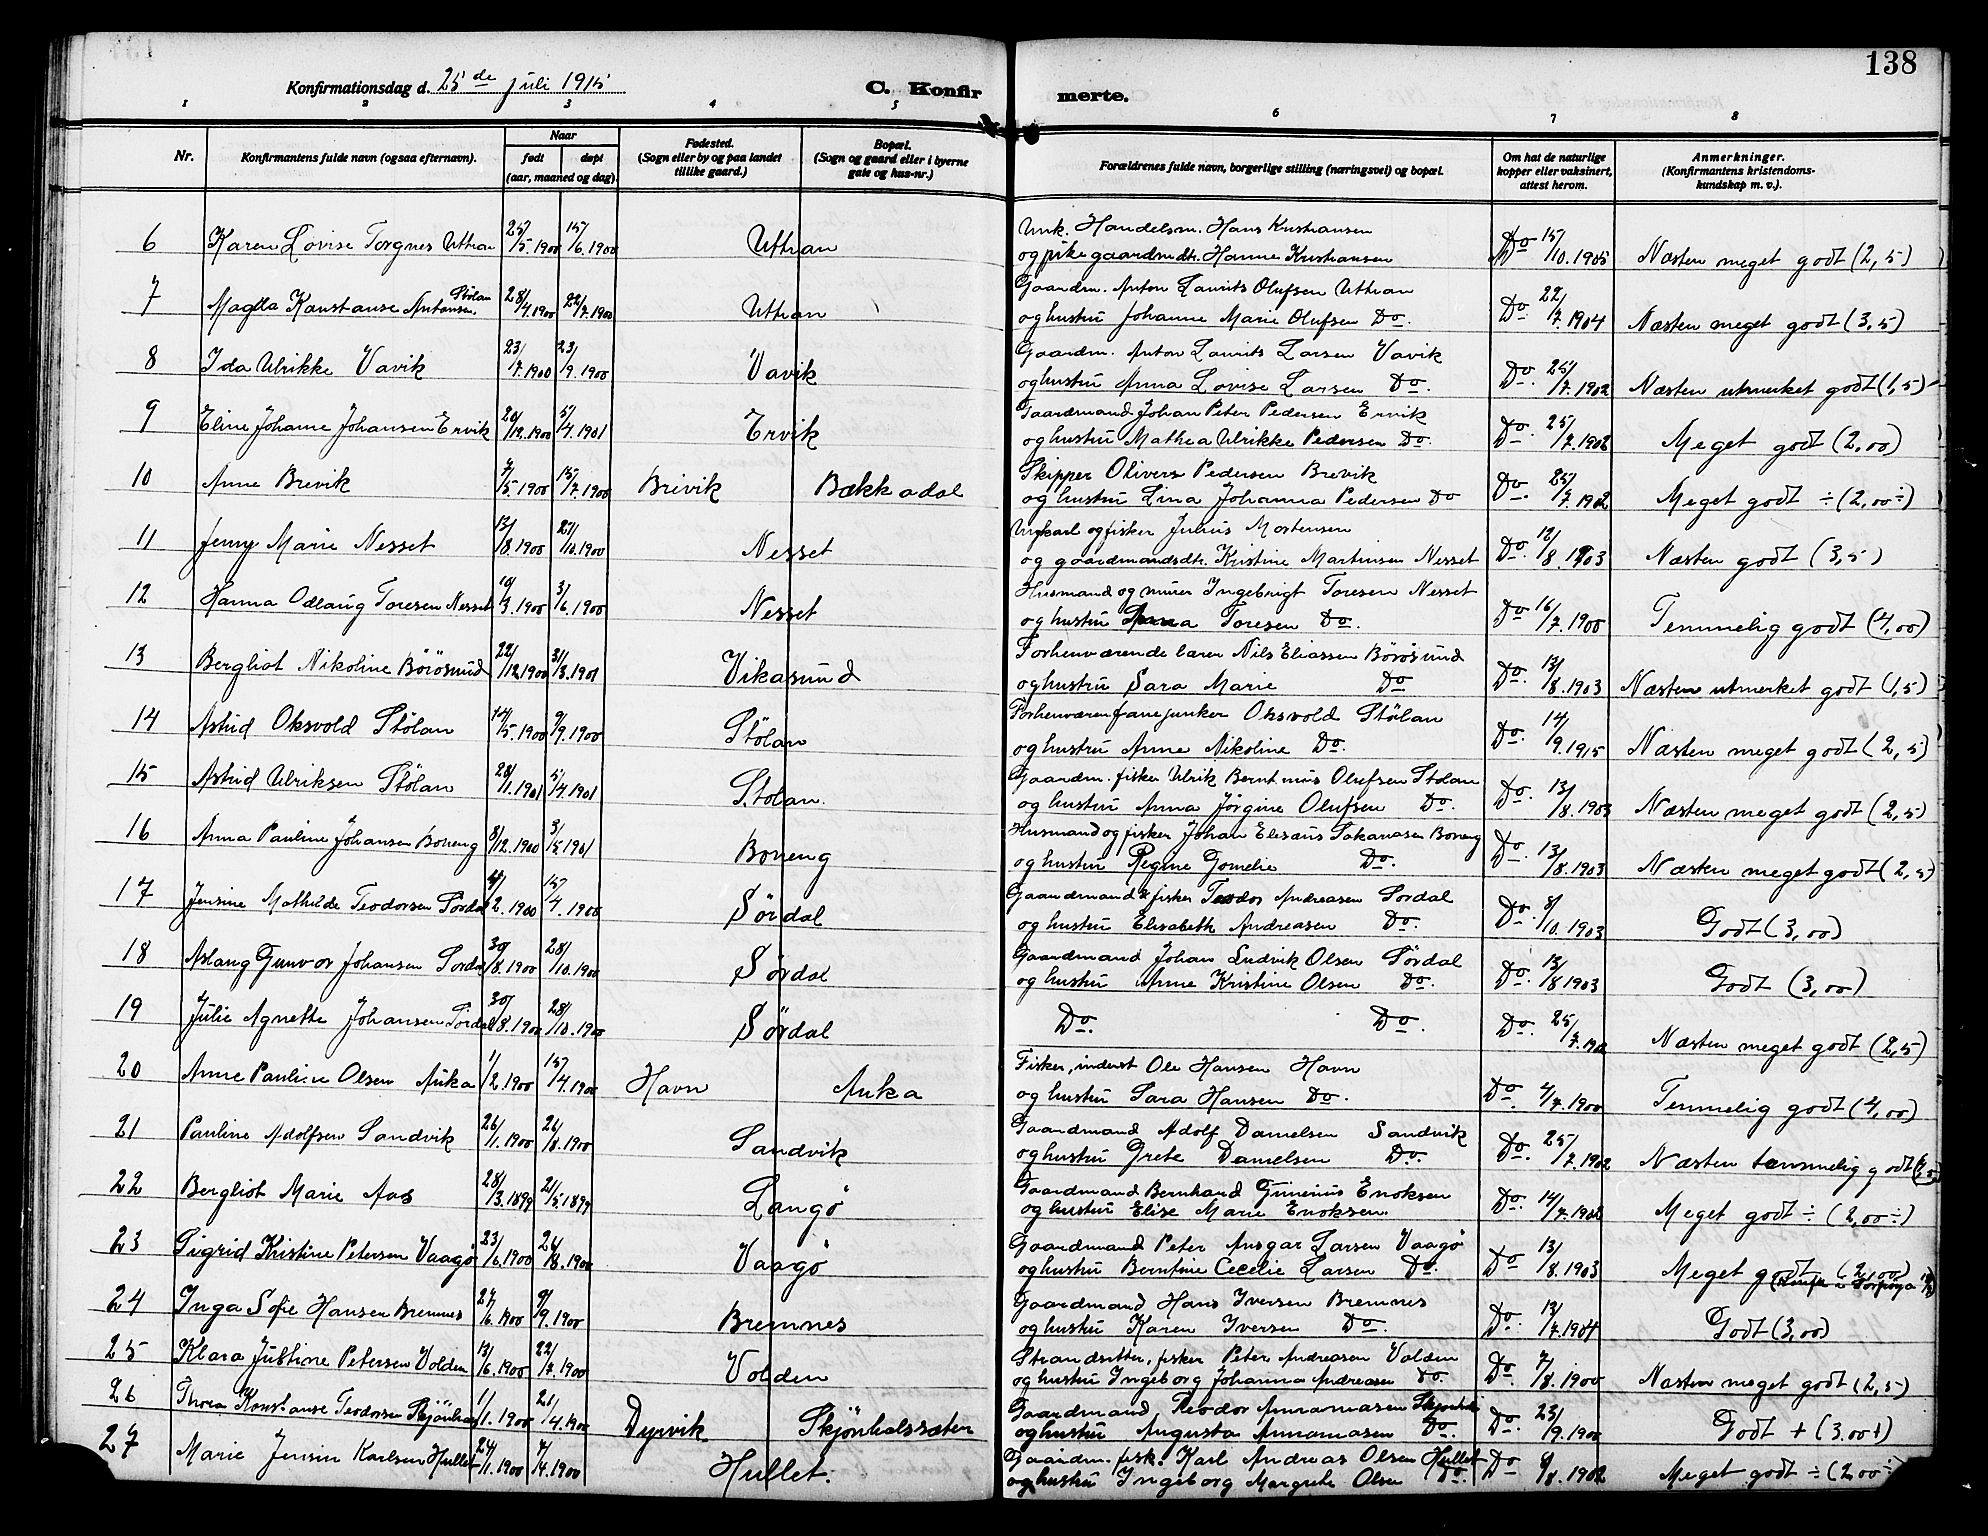 138
Konfirmationsdag d. 25de juli 1915
C. Konfirmerte.
1 2 3 4 5 6 7 8
Nr. Konfirmantens fulde navn (ogsaa efternavn). Naar født døpt (aar, maaned og dag). Fødested. (Sogn eller by og paa landet tillike gaard.) Bopæl. (Sogn og gaard eller i byerne gate og hus-nr.) Forældrenes fulde navn, borgerlige stilling (næringsvei) og bopæl. Om hat de naturlige kopper eller vaksinert, attest herom. Anmerkninger. (Konfirmantens kristendomskundskap m. v.).
6 Karen Lovise Torgnes Uttian 25/5.1900 15/6.1900 Uttian Unk. Handelsm. Hans Kristiansen
og pike gaardmdtr. Hanne Kristiansen Do 15/10.1905 Næsten meget godt (2,5)
7 Magda Konstanse Antonsen Stölan 28/4.1900 22/7.1900 Uttian Gaardm. Anton Laurits Olufsen Uttian
og hustru Johanne Marie Olufsen Do. Do. 22/7.1904 Næsten meget godt (3,5)
8 Ida Ulrikke Vavik 23/7.1900 23/9.1900 Vavik Gaardm. Anton Laurits Larsen Vavik
og hustru Anna Lovise Larsen Do. Do. 25/7.1902 Næsten utmerket godt (1,5)
9 Eline Johanne Johansen Ervik 20/12.1900 5/4.1901 Ervik Gaardmand Johan Peter Pedersen Ervik
og hustru Mathea Ulrikke Pedersen Do. Do. 25/7.1902 Meget godt (2,00)
10 Anne Brevik 7/5.1900 15/7.1900 Brivik Bækkadal Skipper Olivers Pedersen Brevik
og hustru Lina Johanna Pedersen Do Do. 25/7.1902 Meget godt ÷ (2,00 ÷)
11 Jenny Marie Nesset 13/8.1900 27/10.1900 Nesset Ungkarl og fisker Julius Mortensen
og gaardmandsdtr. Kristine Martinsen Nesset Do. 12/8.1903 Næsten godt (3,5)
12 Hanna Odlaug Toresen Nesset 10/3.1900 3/6.1900 Nesset Husmand og murer Ingebrigt Toresen Nesset
og hustru Anna Toresen Do. Do 16/7.1900 Temmelig godt (4,00)
13 Bergliot Nikoline Börösund 22/12.1900 31/3.1901 Vikasund Forhenværende lærer Nils Eliassen Börösund
og hustru Sara Marie Do Do. 13/8.1903 Næsten utmerket godt (1,5)
14 Astrid Oksvold Stölan 14/5.1900 9/9.1900 Stölan Forhenværen fanejunker Oksvold Stölan
og hustru Anne Nikoline Do. Do. 14/9.1915 Næsten meget godt (2,5)
15 Astrid Ulriksen Stölan 28/1.1901 5/4.1901 Stölan. Gaardm. fisker Ulrik Berntinus Olufsen Stölan
og hustru Anna Jørgine Olufsen Do. Do. 13/8.1903 Næsten meget godt (2,5)
16 Anna Pauline Johansen Boneng 8/12.1900 3/5.1901 Boneng Husmand og fisker Johan Elesæus Sakariasen Boneng
og hustru Regine Gomelie Do. Do. 13/8.1903 Næsten meget godt (2,5)
17 Jensine Mathilde Teodorsen Sördal 4/2.1900 15/4.1900 Sördal Gaardmand & fisker Teodor Andreasen Sördal
og hustru Elisabeth Andreasen Do. Do. 8/10.1903 Godt (3,00)
18 Aslaug Gunvor Johansen Sördal 30/8.1900 28/10.1900 Sördal Gaardmand Johan Ludvik Olsen Sördal
og hustru Anne Kristine Olsen Do. Do. 13/8.1903 Godt (3,00)
19 Julie Agnette Johansen Sördal 30/8.1900 28/10.1900 Sördal Do. Do. Do. 25/7.1902 Næsten meget godt (2,5)
20 Anne Pauline Olsen Auka 1/2.1900 15/4.1900 Havn Auka Fisker, inderst Ole Hansen Havn
og hustru Sara Hansen Do. Do. 4/7.1900 Temmelig godt (4,00)
21 Pauline Adolfsen Sandvik 26/1.1900 26/8.1900 Sandvik Gaardmand Adolf Danielsen Sandvik
og hustru Grete Danielsen Do. Do. 25/7.1902 Næsten temmelig godt
22 Bergliot Marie Aas 28/3.1899 21/5.1899 Langö Gaardmand Bernhard Gunerius Enoksen
og hustru Elise Marie Enoksen Do. 14/7.1902 Meget godt ÷ (2,00 ÷)
23 Sigrid Kristine Petersen Vaagö 23/6.1900 26/8.1900 Vaagö Gaardmand Peter Ansgar Larsen Vaagö
og hustru Berntine Cecelie Larsen Do. Do 13/8.1903 Meget godt (2,00)
24 Inga Sofie Hansen Bremnes 27/6.1900 9/9.1900 Bremnes Gaardmand Hans Iversen Bremnes
og hustru Karen Iversen Do. Do. 13/7.1904 Godt (3,00)
25 Klara Justine Petersen Volden 13/6.1900 22/7.1900 Volden Strandsitter, fisker Peter Andreasen Volden
og hustru Ingeborg Johanna Andreasen Do Do. 7/8.1900 Næsten meget godt (2,5)
26 Thora Konstanse Teodorsen 1/1.1900 21/4.1900 Dyrvik Skjönhalssæter Gaardmand, Teodor
og hustru Augusta Do. Do. 23/9.1900 Godt + (3.00+)
27 Marie Jensin Karlsen Hullet 24/1.1900 7/4.1900 Hullet. Gaardm. fisk. Karl Andreas Olsen Hullet
og hustru Ingeborg Margrete Olsen Do. Do 9/8.1902 Meget godt ÷ (2,00 ÷